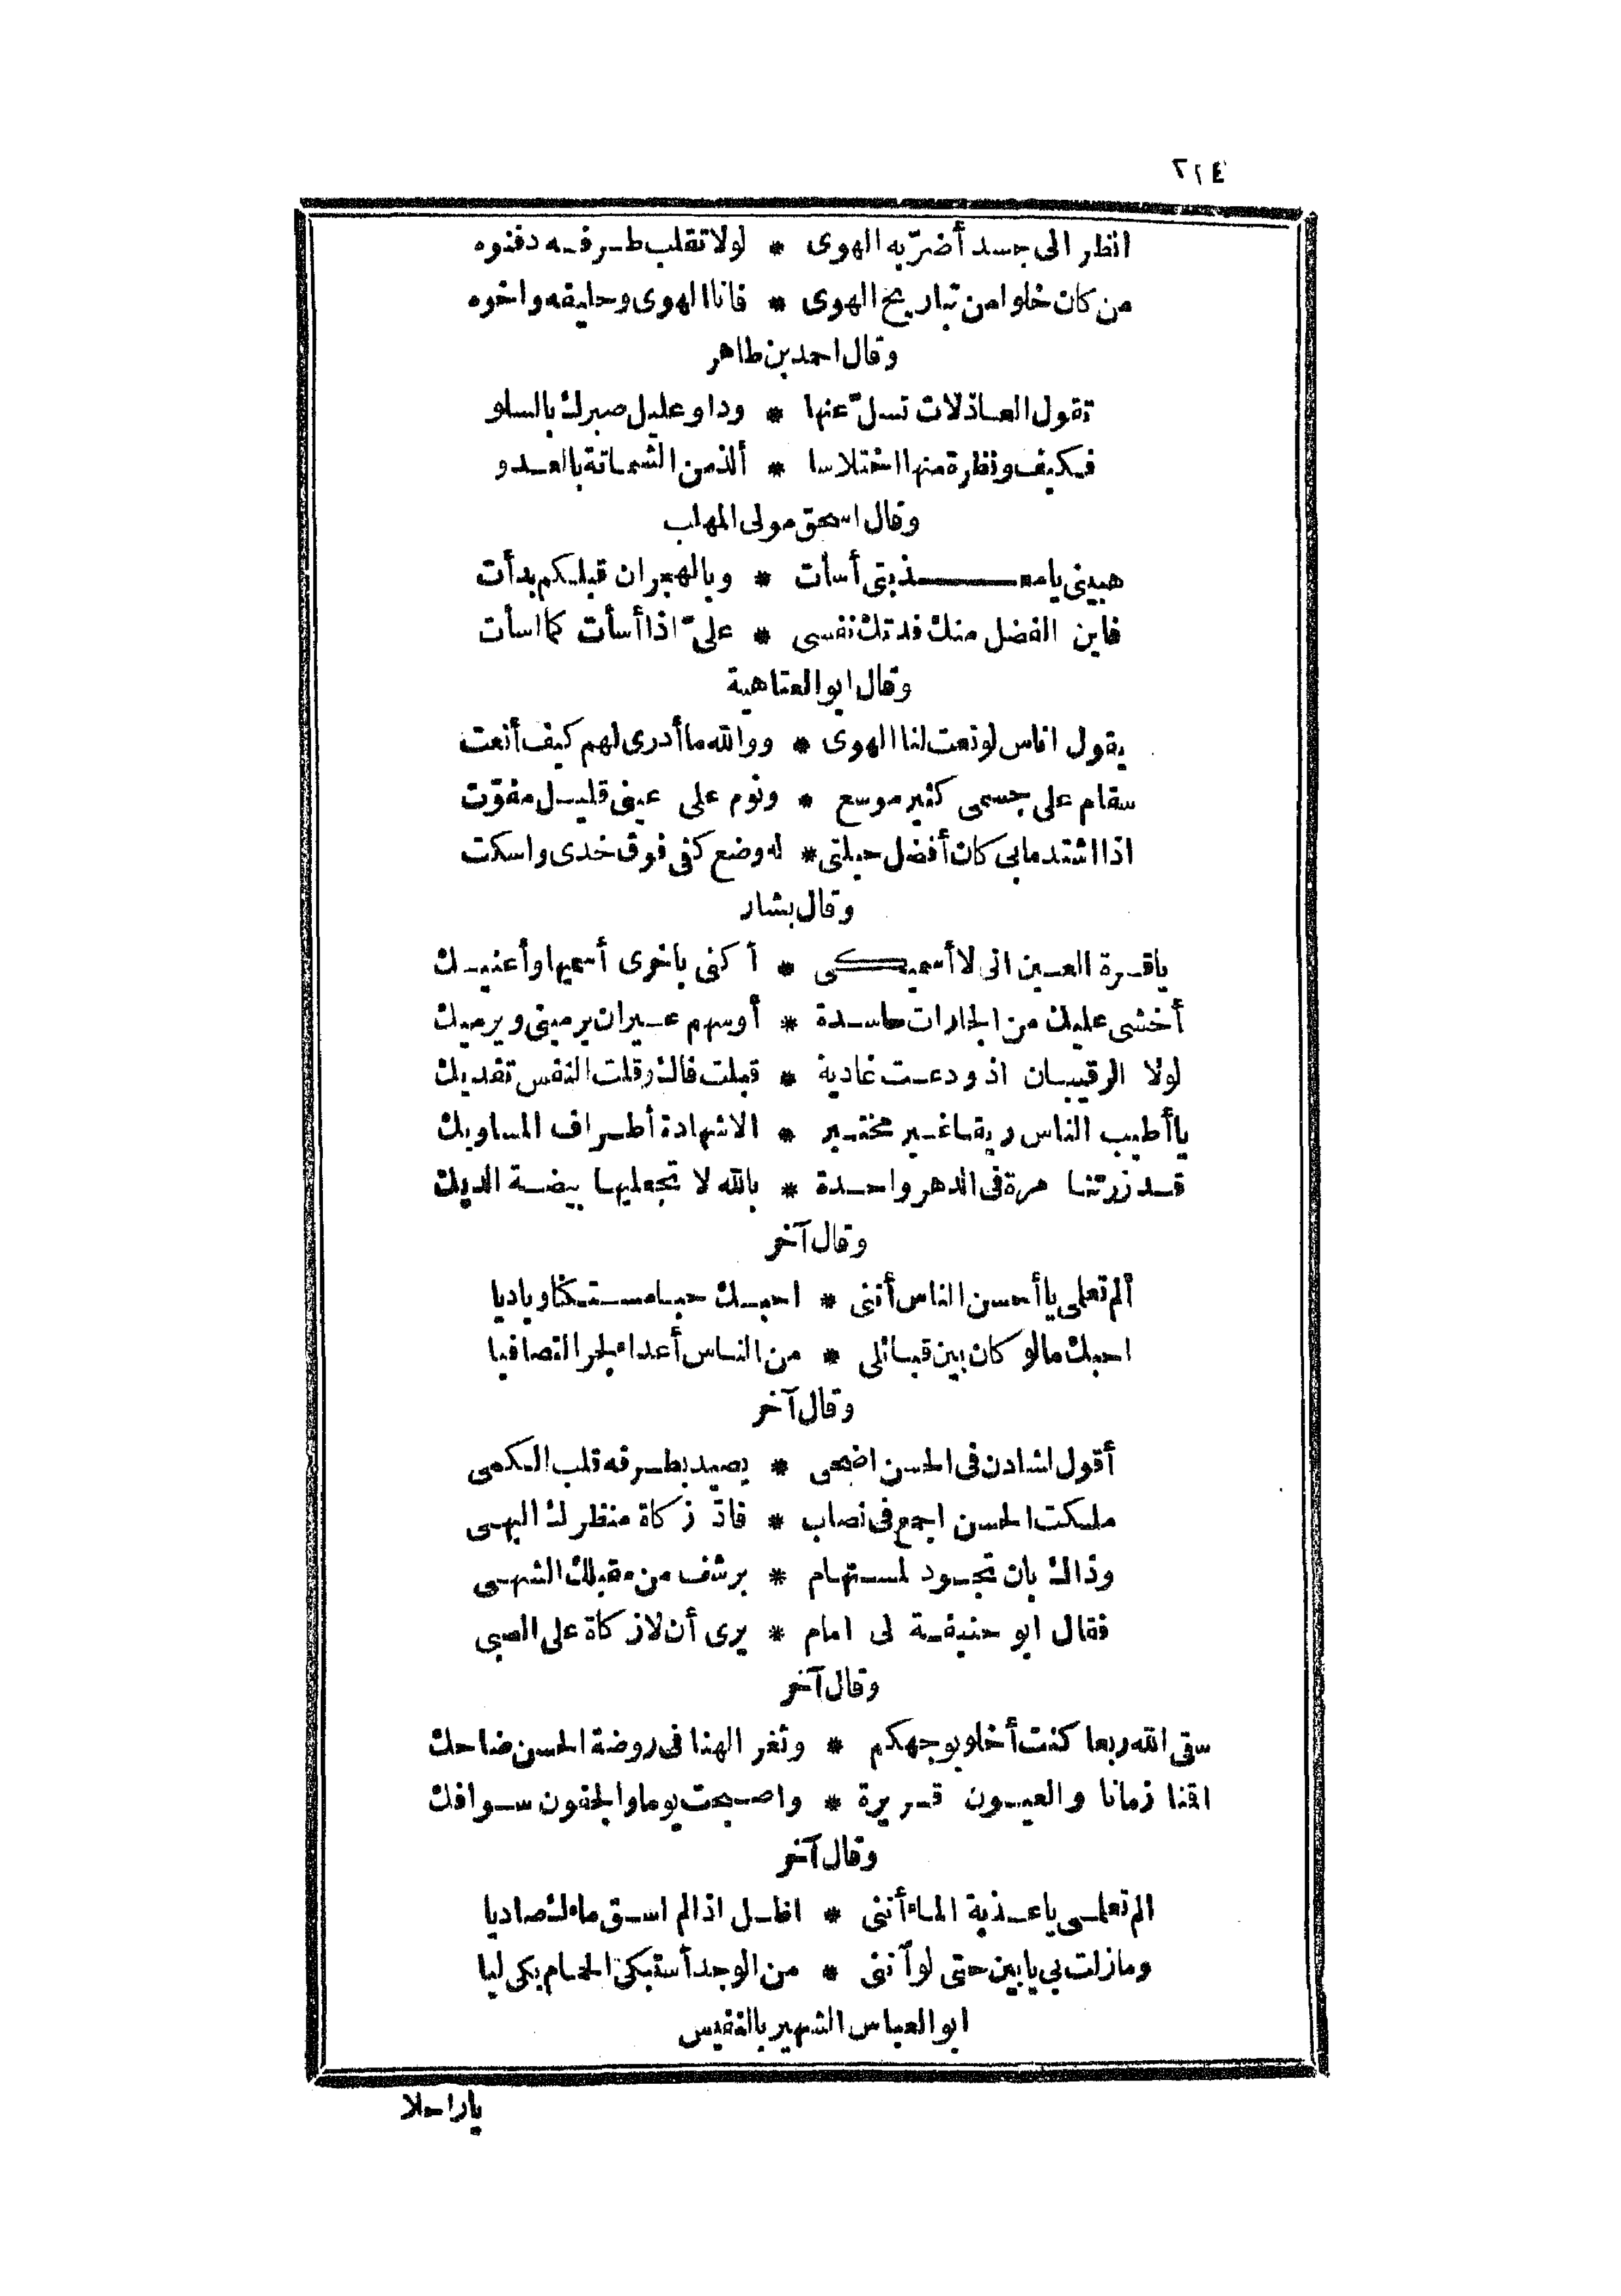 ٢١٤
انظر الى جسد أضرّ به الهوى * لولا تقلب طرفه دفنوه
من كان خلوا من تباريح الهوى * فانا الهوى وحليفه واخوه
وقال احمد بن طاهر
تقول العاذلات تسلّ عنها * وداو عليل صبرك بالسلو
فكيف ونظرة منها اختلاسا * ألذ من الشماتة بالعدو
وقال اسحق مولى المهلب
هبيني يا معذبتي أسأت * وبالهجران قبلكم بدأت
فاين الفضل منك فدتك نفسي * علىّ اذا أسأت كما اسأت
وقال ابو العتاهية
يقول اناس لو نعت لنا الهوى * ووالله ما أدرى لهم كيف أنعت
سقام على جسمى كثير موسع * ونوم على عينى قليل مفوّت
اذا اشتد ما بى كان أفضل حيلتى * له وضع كفى فوق خدى واسكت
وقال بشار
يا قرة العين انى لا أسميكى * أكنى باخرى أسميها وأعنيك
أخشى عليك من الجارات حاسدة * أو سهم غيران يرمينى ويرميك
لولا الرقيبان اذ ودعت غادية * قبلت فاك وقلت النفس تفديك
يا أطيب الناس ريقا غير مختبر * الا شهادة أطراف المساويك
قد زرتنا مرة فى الدهر واحدة * بالله لا تجعليها بيضة الديك
وقال آخر
ألم تعلمى يا أحسن الناس أننى * احبك حبا مستكنا وباديا
احبك ما لو كان بين قبائلى * من الناس أعداء لجر التصافيا
وقال آخر
أقول لشادن فى الحسن اضحى * يصيد بطرفه قلب الكمى
ملكت الحسن اجمع فى نصاب * فادّ زكاة منظرك البهى
وذاك بان تجود لمستهام * برشف من مقبلك الشهى
فقال ابو حنيفة لى امام * يرى أن لا زكاة على الصبى
وقال آخر
سقى الله ربعا كنت أخلو بوجهكم * وثغر الهنا فى روضة الحسن ضاحك
اقنا زمانا والعيون قريرة * واصبحت يوما والجفون سوافك
وقال آخر
الم تعلمى يا عذبة الماء أننى * اظل اذا لم اسق ماءك صاديا
وما زلت بى يا بين حتى لو أننى * من الوجد أستبكى الحمام بكى ليا
ابو العباس الشهير بالنفيس
يا راحلا